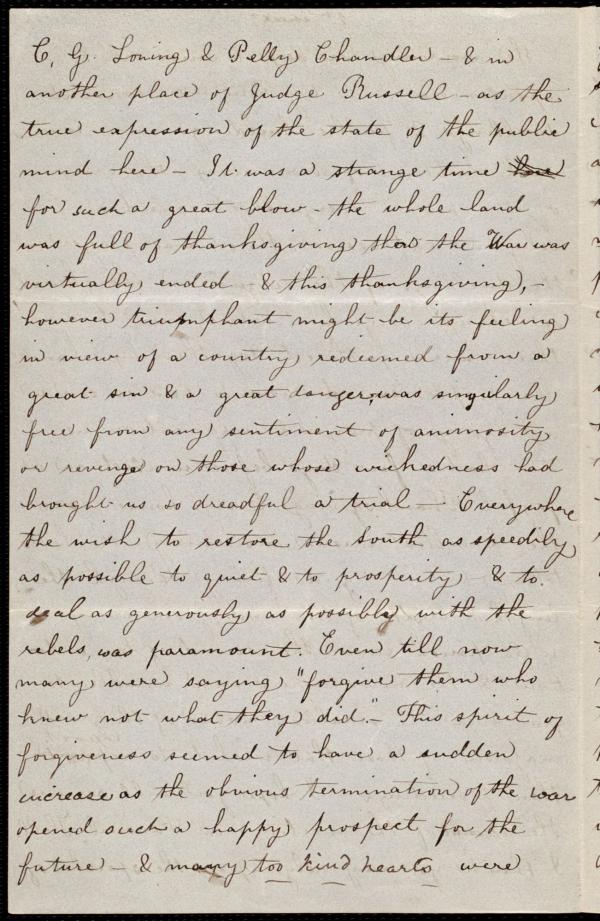 C. G. Loring & Pelly Chandler – & in
another place of Judge Russell – as the
true expression of the state of the public
mind here – It was a strange time here
for such a great blow – the whole land
was full of thanksgiving that the War was
virtually ended – & this thanksgiving, –
however triumphant might be its feeling
in view of a country redeemed from a
great sin & a great danger, was singularly
free from any sentiment of animosity
or revenge on those whose wickedness had
brought us so dreadful a trial – Everywhere
the wish to restore the South as speedily
as possible to quiet & to prosperity & to
deal as generously as possibly with the
rebels, was paramount. Even till now
many were saying "forgive them who
knew not what they did." – This spirit of
forgiveness seemed to have a sudden
increase as the obvious termination of the war
opened such a happy prospect for the
future – & many too kind hearts were